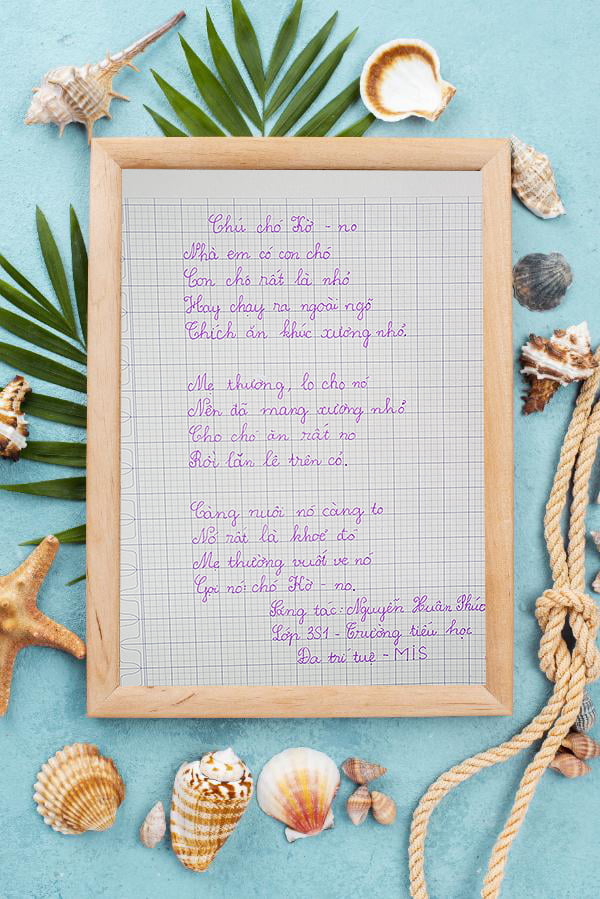 Chú chó Kờ - no
Nhà em có con chó
Con chó rất là nhỏ
Hay chạy ra ngoài ngõ
Thích ăn khúc xương nhỏ.
Mẹ thương, lo cho nó
Nên đã mang xương nhỏ
Cho chó ăn rất no
Rồi lăn lê trên cỏ.
Càng nuôi nó càng to
Nó rất là khoẻ đó
Mẹ thường vuốt ve nó
Gọi nó: chó Kờ - no.
Sáng tác: Nguyễn Xuân Phúc
Lớp 3S1 - Trường tiểu học
Đa trí tuệ - MIS